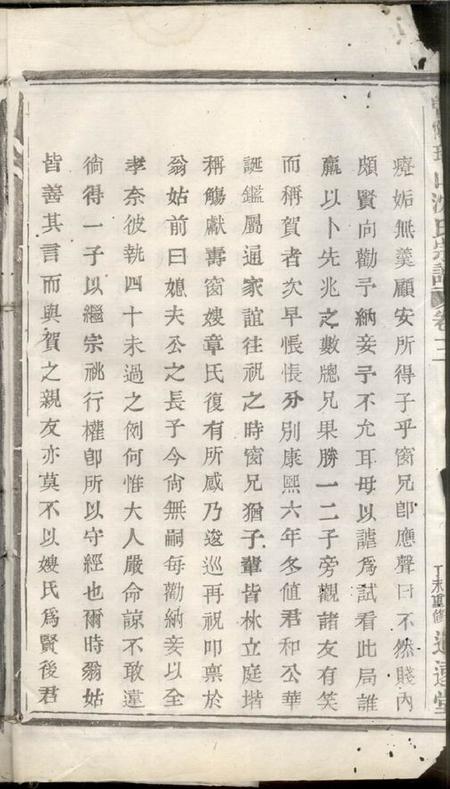 療妬無羹顧安所得子乎窗兄卽應聲曰不然賤內
頗賢向勸予納妾予不允耳毋以謔為試看此局誰
贏以卜先兆之數牕兄果勝一二子旁觀諸友有笑
而稱賀者次早悵悵分別康熙六年冬值君和公華
誕鑑屬通家誼往祝之時窗兄猶子輩皆林立庭堦
稱觴獻壽窗嫂章氏復有所感乃逡巡再祝叩稟於
翁姑前曰媳夫公之長子今尙無嗣每勸納妾以全
孝奈彼執四十未過之例何惟大人嚴命諒不敢違
倘得一子以繼宗祧行權卽所以守經也爾時翁姑
皆善其言而與賀之親友亦莫不以嫂氏為賢後君
山沈氏宗譜 卷十二
丁未重修